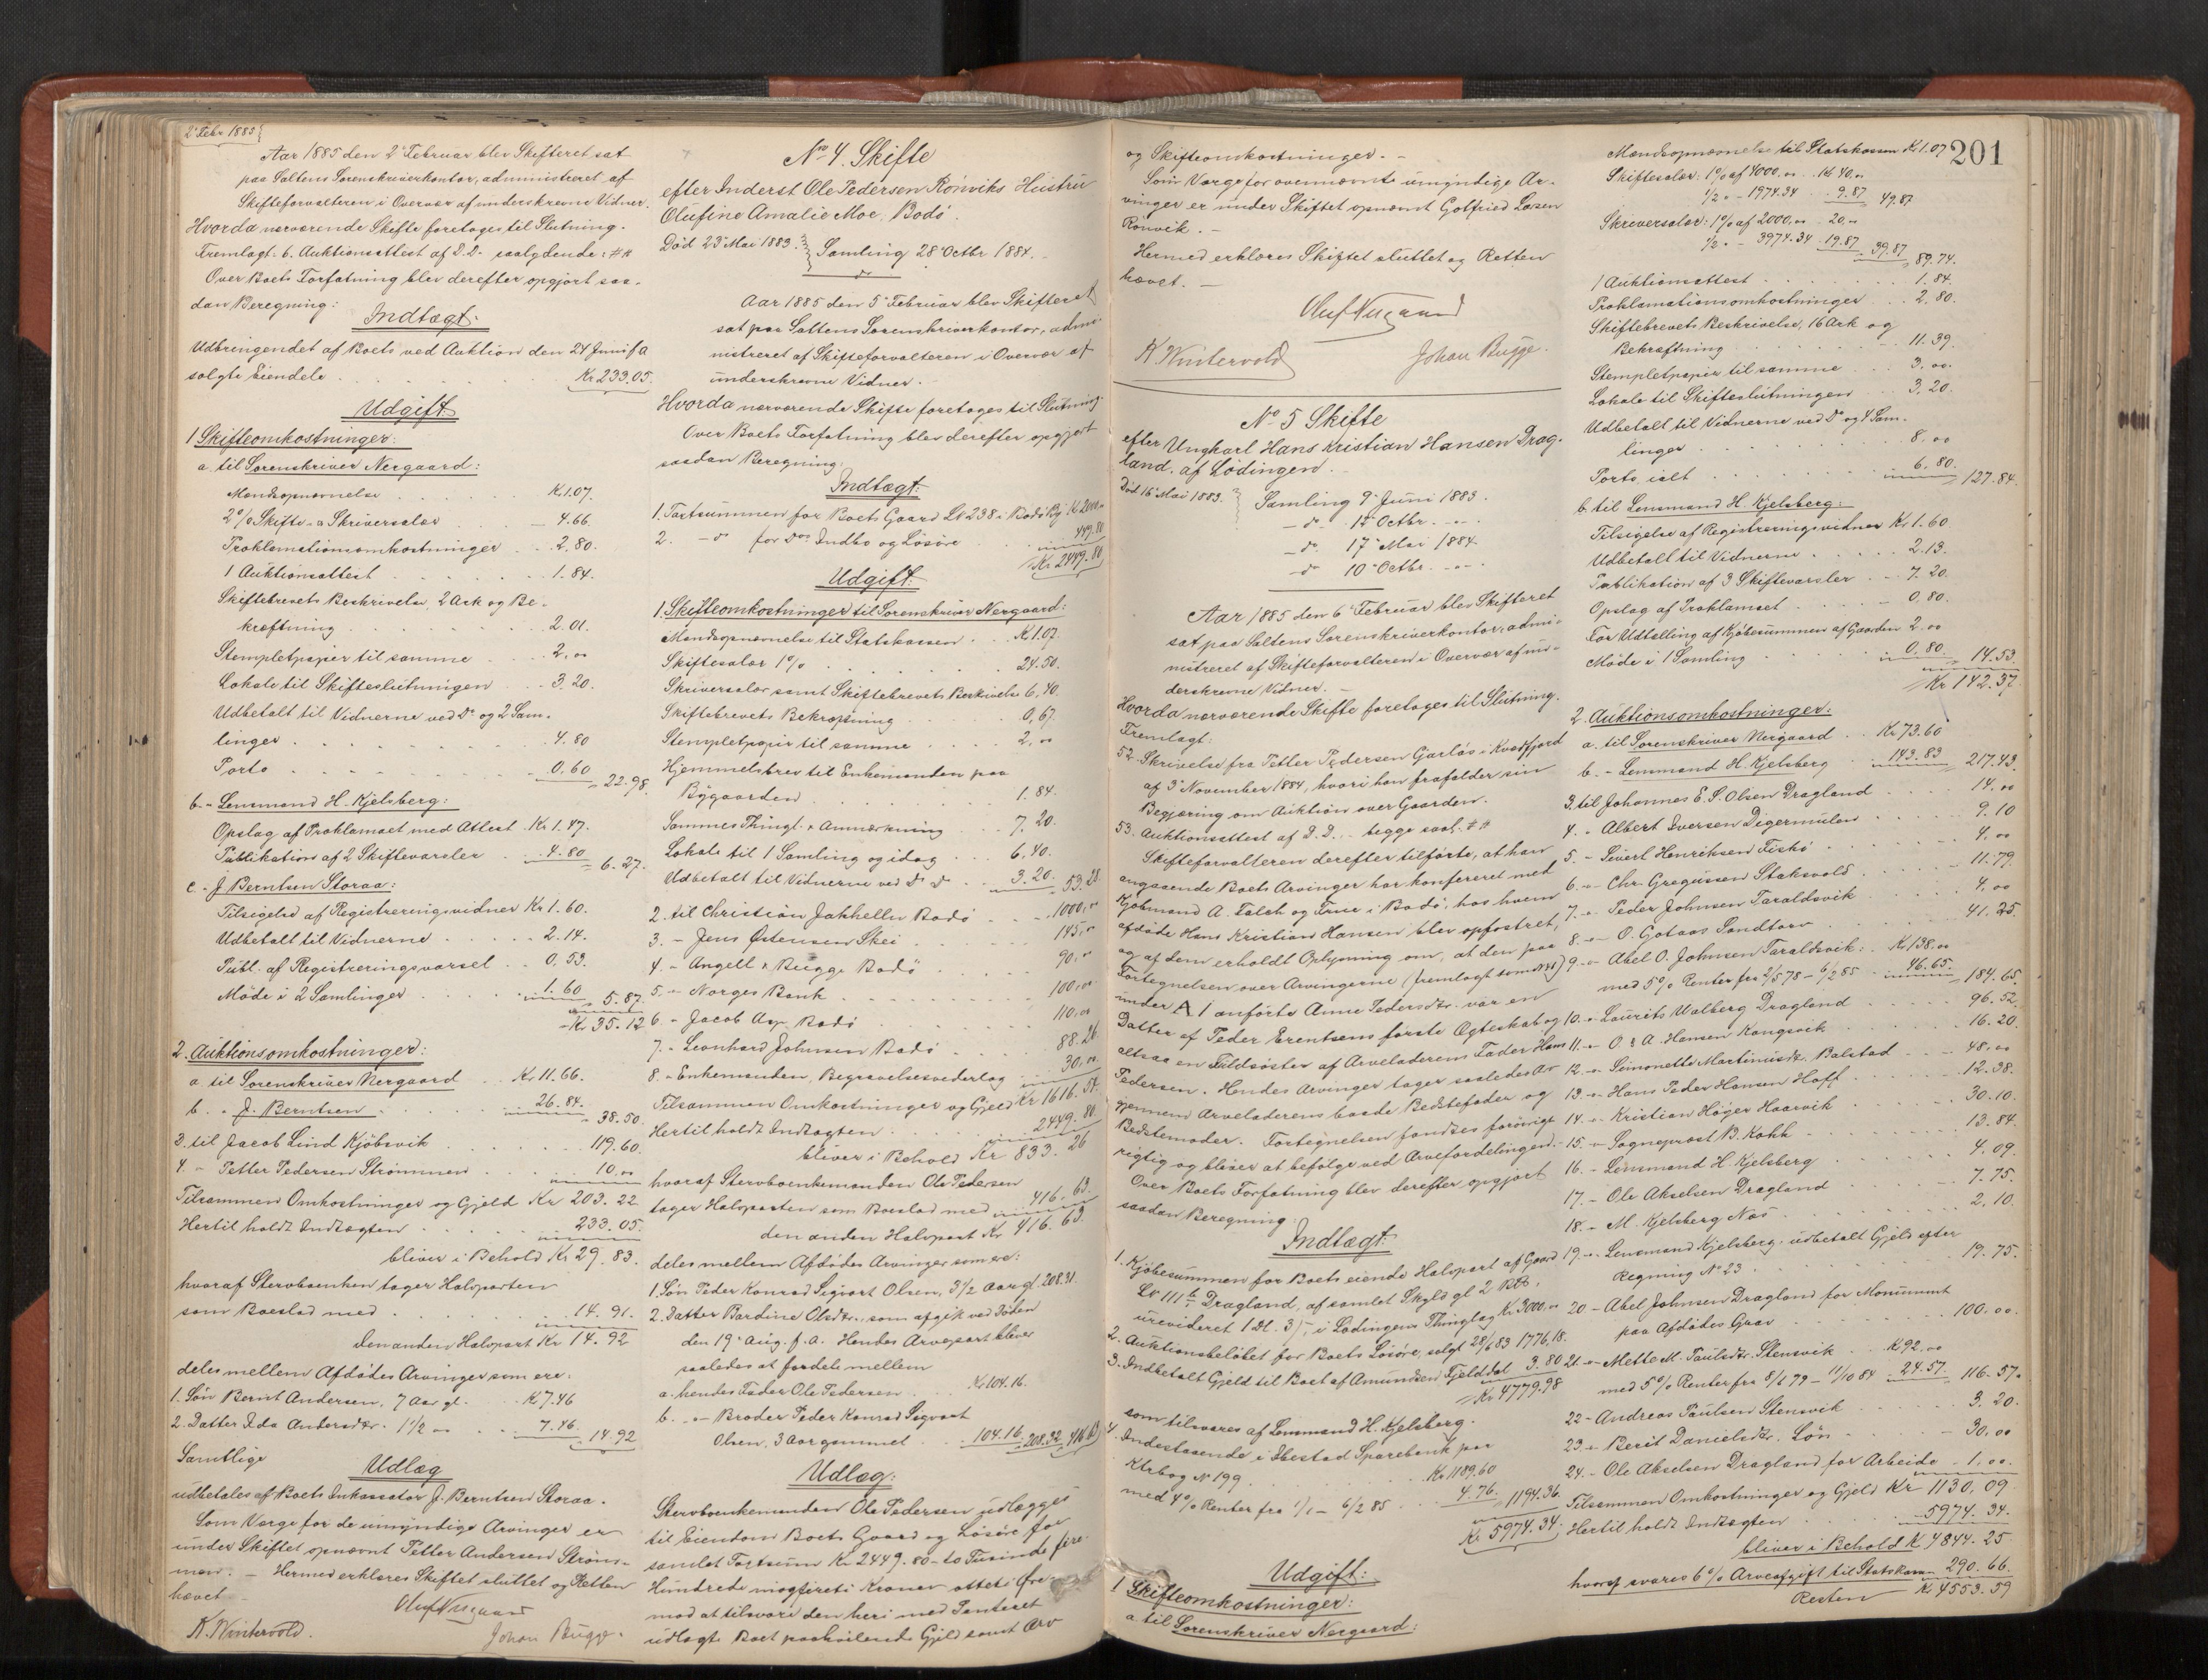 2 Febr 1885
Aar 1885 den 2 Februar blev Skifteret sat
paa Saltens Sorenskriverkontor, administreret af
Skifteforvalteren i Overvær af underskrevne Vidner.
Hvorda nærværende Skifte foretoges til Slutning.
Fremlagt: 6. Auktionsattest af D.D. saalydende: ##
Over Boets Forfatning blev derefter opgjort saa-
dan Beregning:
Indtægt:
Udbringendet af Boets ved Auktion den 24 Juni f A
solgte Eiendele . . . Kr 233.05.
Udgift
1 Skifteomkostninger:
a. til Sorenskriver Nergaard:
Mændsopnævnelse . . . Kr 1.07.
2% Skifte- & Skriversalær . . - 4.66.
Proklamationsomkostninger . . - 2.80.
1 Auktionsattest . . . - 1.84.
Skiftebrevets Beskrivelse, 2 Ark og Be-
kræftning . . . - 2.01.
Stempletpapir til samme . . - 2.00
Lokale til Skifteslutningen . . - 3.20.
Udbetalt til Vidnerne ved Do og 2 Sam-
linger . . . - 4.80
Porto . . . - 0.60 = 22.98.
b. - Lensmand H. Kjelsberg:
Opslag af Proklamaet med Attest Kr 1.47.
Publikation af 2 Skiftevarsler . - 4.80 = 6.27.
c. - J. Berntsen Storaa:
Tilsigelse af Registreringsvidner Kr 1.60.
Udbetalt til Vidnerne . . . - 2.14.
Publ. af Registreringsvarsel . . 0.53.
Møde i 2 Samlinger . . . 1.60 = 5.87.
Kr 35.12
2. Auktionsomkostninger:
a til Sorenskriver Nergaard . . Kr 11.66.
b. - J. Berntsen . . . 26.84. = 38.50.
3. til Jacob Lind Kjøbsvik . . . 119.60.
4. - Petter Pedersen Strømmen . . . 10.00
Tilsammen Omkostninger og Gjeld Kr 203.22
Hertil holdt Indtægten . . . 233.05.
bliver i Behold Kr 29.83.
hvoraf Stervboenken tager Halvparten
som Boeslod med . . . 14.91.
den anden Halvpart Kr 14.92
deles mellem Afdødes Arvinger som ere:
1. Søn Bernt Andersen, 7 Aar gl. . Kr 7.46
2. Datter Ida Andersdtr. 1½ " . . 7.46. = 14.92
Samtlige
Udlæg
udbetales af Boets Inkassator J. Berntsen Storaa.
Som Værge for de umyndige Arvinger er
under Skiftet opnævnt Petter Andersen Strøm-
men. - Hermed erklæres Skiftet sluttet og Retten
hævet -
Oluf Nergaard
K. Wintervold.
Johan Bugge.
No 4. Skifte
efter Inderst Ole Pedersen Rønviks Hustru
Olufine Amalie Moe, Bodø.
Død 23 Mai 1883. Samling 28 Octbr 1884.
Aar 1885 den 5 Februar blev Skifteret
sat paa Saltens Sorenskriverkontor, admi-
nistreret af Skifteforvalteren i Overvær af
underskrevne Vidner.
Hvorda nærværende Skifte foretoges til Slutning.
Over Boets Forfatning blev derefter opgjort
saadan Beregning:
Indtægt:
1. Taxtsummen for Boets Gaard LN 238 i Bodø By Kr 2000.
2. - do for dets Indbo og Løsøre . . 449.80
Kr 2449.80
Udgift:
1. Skifteomkostninger til Sorenskriver Nergaard:
Mændsopnævnelse til Statskassen . . Kr 1.07.
Skiftesalær 1% . . . 24.50.
Skriversalær samt Skiftebrevets Beskrivelse 6,40.
Skiftebrevets Bekræftning . . . 0,67.
Stempletpapir til samme . . . 2,00
Hjemmelsbrev til Enkemanden paa
Bygaarden . . . 1.84.
Sammes Thingl. & Anmærkning . . 7.20.
Lokale til 1 Samling og idag . . . 6.40.
Udbetalt til Vidnerne ved do do . . 3.20. = 53.28
2. til Christian Jakhelln Bodø . . . 1000.00
3. - Jens Østensen Skei . . . 145.00
4. - Angell & Bugge Bodø . . . 90.00
5. - Norges Bank . . . 100.00
6. - Jacob Asp Bodø . . . 110.00
7. - Leonhard Johnsen Bodø . . . 88.26
8. - Enkemanden, Begravelsesvederlag . . 30.00
Tilsammen Omkostninger og Gjeld Kr 1616.54.
Hertil holdt Indtægten . . . 2449.80
bliver i Behold Kr 833.26
hvoraf Stervboenkemanden Ole Pedersen
tager Halvparten som Boeslod med . . 416.63.
den anden Halvpart Kr 416.63
deles mellem Afdødes Arvinger som ere:
1. Søn Peder Konrad Sigvart Olsen, 3½ Aar gl. 208.31.
2. Datter Bardine Olsdtr., som afgik ved Døden
den 19 Aug. f.a. Hendes Arvepart bliver
saaledes at fordele mellem
a. hendes Fader Ole Pedersen . . Kr 104.16.
b. - " - Broder Peder Konrad Sigvart
Olsen, 3 Aar gammel . . 104.16. = 208.32 = 416.63
Udlæg:
Stervboenkemanden Ole Pedersen udlægges
til Eiendom Boets Gaard og Løsøre for
samlet Taxtsum Kr 2449.80 - to Tusinde fire
Hundrede niogfireti Kroner otteti Øre -
mod at tilsvare den heri med Panteret
udlagte Boet paahvilende Gjeld samt Arv
og Skifteomkostninger. -
Som Værge for ovennævnte umyndige Ar-
vinger er under Skiftet opnævnt Gotfried Larsen
Rønvik. -
Hermed erklæres Skiftet sluttet og Retten
hævet. -
Oluf Nergaard
K. Wintervold
Johan Bugge.
No 5 Skifte
efter Ungkarl Hans Kristian Hansen Drag-
land, af Lødingen.
Død 16 Mai 1883. Samling 9 Juni 1883.
- do. 15 Octbr. - " -
- do. 17 Mai 1884.
- do 10 Octbr. - " -
Aar 1885 den 6 Februar blev Skifteret
sat paa Saltens Sorenskriverkontor, admi-
nistreret af Skifteforvalteren i Overvær af un-
derskrevne Vidner. -
Hvorda nærværende Skifte foretoges til Slutning.
Fremlagt:
52 Skrivelse fra Petter Pedersen Gjærløs i Kvædfjord
af 3 November 1884, hvori han frafalder sin
Begjæring om Auktion over Gaarden.
53. Auktionsattest af D.D. - begge saal. ##
Skifteforvalteren derefter tilførte, at han
angaaende Boets Arvinger har konfereret med
Kjøbmand A. Falch og Frue i Bodø, hos hvem
afdøde Hans Kristian Hansen blev opfostret,
og af dem erholdt Oplysning om, at den paa
Fortegnelsen over Arvingerne (fremlagt som
under A 1 anførte Anne Pedersdtr. var en
Datter af Peder Erentsens første Ægteskab og
altsaa en Fuldsøster af Arveladerens Fader Hans
Pedersen. Hendes Arvinger tager saaledes Arv
gjennem Arveladerens baade Bedstefader og
Bedstemoder. Fortegnelsen fandtes forøvrigt
rigtig og bliver at befølge ved Arvefordelingen. -
Over Boets Forfatning blev derefter opgjort
saadan Beregning:
Indtægt:
1. Kjøbesummen for Boets eiende Halvpart af Gaard
LN 111 b Dragland, af samlet Skyld gl 2
urevideret 1 Dl. 3 i Lødingens Thinglag Kr 3000.00
2. Auktionsbeløbet for Boets Løsøre, solgt 28/6 83 1776.18.
3. Indbetalt Gjeld til Boet af Amundsen Fjelddal 3.80
Kr 4779.98
som tilsvares af Lensmand H. Kjelsberg.
4. Indestaaende i Ibestad Sparebank paa
Ktrbog No 199 . . . Kr 1189.60
med 4% Renter fra 1/1 - 6/2 85 . . 4.76. = 1194.36.
Kr 5974.34.
Udgift:
1 Skifteomkostninger:
a til Sorenskriver Nergaard:
201
Mændsopnævnelse til Statskassen Kr 1.07
Skiftesalær: 1% af 4000.00 . . Kr 40.00
½ " - 1974.34 . . 9.87 49.87
Skriversalær: 1% af 2000.00 . 20.00
½ " - 3974.34 . 19.87 39.87 = 89.74.
1 Auktionsattest . . . 1.84.
Proklamationsomkostninger . . . 2.80.
Skiftebrevets Beskrivelse, 16 Ark og
Bekræftning . . . 11.39.
Stempletpapir til samme . . . 3.00.
Lokale til Skifteslutningen . . . 3.20.
Udbetalt til Vidnerne ved Do og 4 Sam-
linger . . . 8.00
Porto ialt . . . 6.80. = 127.84.
b. til Lensmand H. Kjelsberg:
Tilsigelse af Registreringsvidner Kr 1.60
Udbetalt til Vidnerne . . . 2.13.
Publikation af 3 Skiftevarsler . - 7.20.
Opslag af Proklamaet . . . - 0.80.
For Udtælling af Kjøbesummen af Gaarden 2.00
Møde i 1 Samling . . . 0.80. = 14.53.
Kr 142.37
2. Auktionsomkostninger:
a. til Sorenskriver Nergaard . . Kr 73.60
b. - Lensmand H. Kjelsberg . . 143.83 = 217.43.
3. til Johannes E. S. Olsen Dragland . . . 14.00
4. - Albert Iversen Digermulen . . . 9.10
5. - Sivert Henriksen Fiskø . . . 4.00
6. - Chr. Gregussen Staksvold . . . 11.79.
7. - Peder Johnsen Taraldsvik . . . 4.00
8. - O. Gotaas Sandtorv . . . 41.25.
9. - Abel O. Johnsen Taraldsvik: . Kr 138.00
med 5% Renter fra 2/5 78 - 6/2 85 . . 46.65. = 184.65.
10. - Laurits Walberg Dragland . . . 96.52.
11. - O. & A. Hansen Kongsvik . . . 16.20.
12. - Simonette Martinusdtr. Balstad . . . 48.00
13. - Hans Peder Hansen Hoff . . . 12.38.
14. - Kristian Høyer Haarvik . . . 30.10.
15. - Sogneprest B. Kahh . . . 13.84.
16. - Lensmand H. Kjelsberg . . . 4.09.
17. - Ole Akselsen Dragland . . . 7.75.
18. - M. Kjelsberg Næs . . . 2.10.
19. - Lensmand Kjelsberg, udbetalt Gjeld efter
Regning No 23 . . . 19.75.
20 - Abel Johnsen Dragland for Monument
paa Afdødes Grav . . . 100.00.
21. - Mette M. Paulsdtr. Stensvik . . Kr 92.00
med 5% Renter fra 8/6 79 - 11/10 84 . 24.57. 116.57.
22 - Andreas Paulsen Stensvik . . . 3.20.
23. - Berit Danielsdtr. Løn . . . 30.00
24. - Ole Akselsen Dragland for Arbeide . 1.00.
Tilsammen Omkostninger og Gjeld Kr 1130.09
Hertil holdt Indtægten . . . 5974.34.
bliver i Behold Kr 4844.25
hvoraf svares 6% Arveafgift til Statskassen 290.66.
Resten Kr 4553.59